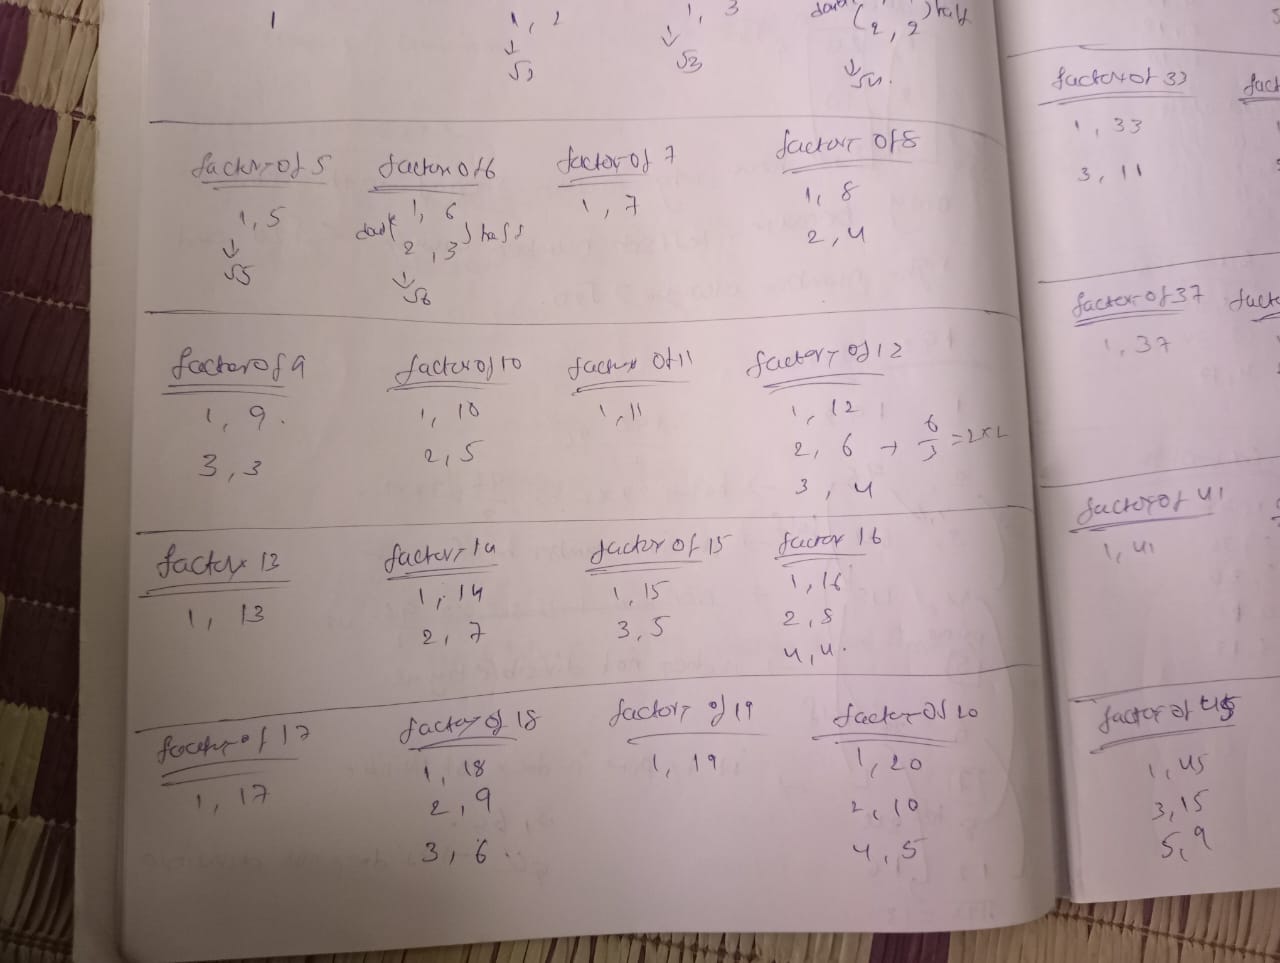 1
1, 2
1, 3
(2, 2) half
↓
↓
↓
√2
√3
√4.
factor of 5
1, 5
↓
√5
factor of 6
1, 6
2, 3) half
↓
√6
factor of 7
1, 7
factor of 8
1, 8
2, 4
factor of 9
1, 9.
3, 3
factor of 10
1, 10
2, 5
factor of 11
1, 11
factor of 12
1, 12
2, 6 → 6/3 = 2×2
3, 4
factor 13
1, 13
factor 14
1, 14
2, 7
factor of 15
1, 15
3, 5
factor 16
1, 16
2, 8
4, 4.
factor of 17
1, 17
factor of 18
1, 18
2, 9
3, 6.
factor of 19
1, 19
factor of 20
1, 20
2, 10
4, 5
factor of 33
1, 33
3, 11
factor of 37
1, 37
factor of 41
1, 41
factor of 45
1, 45
3, 15
5, 9